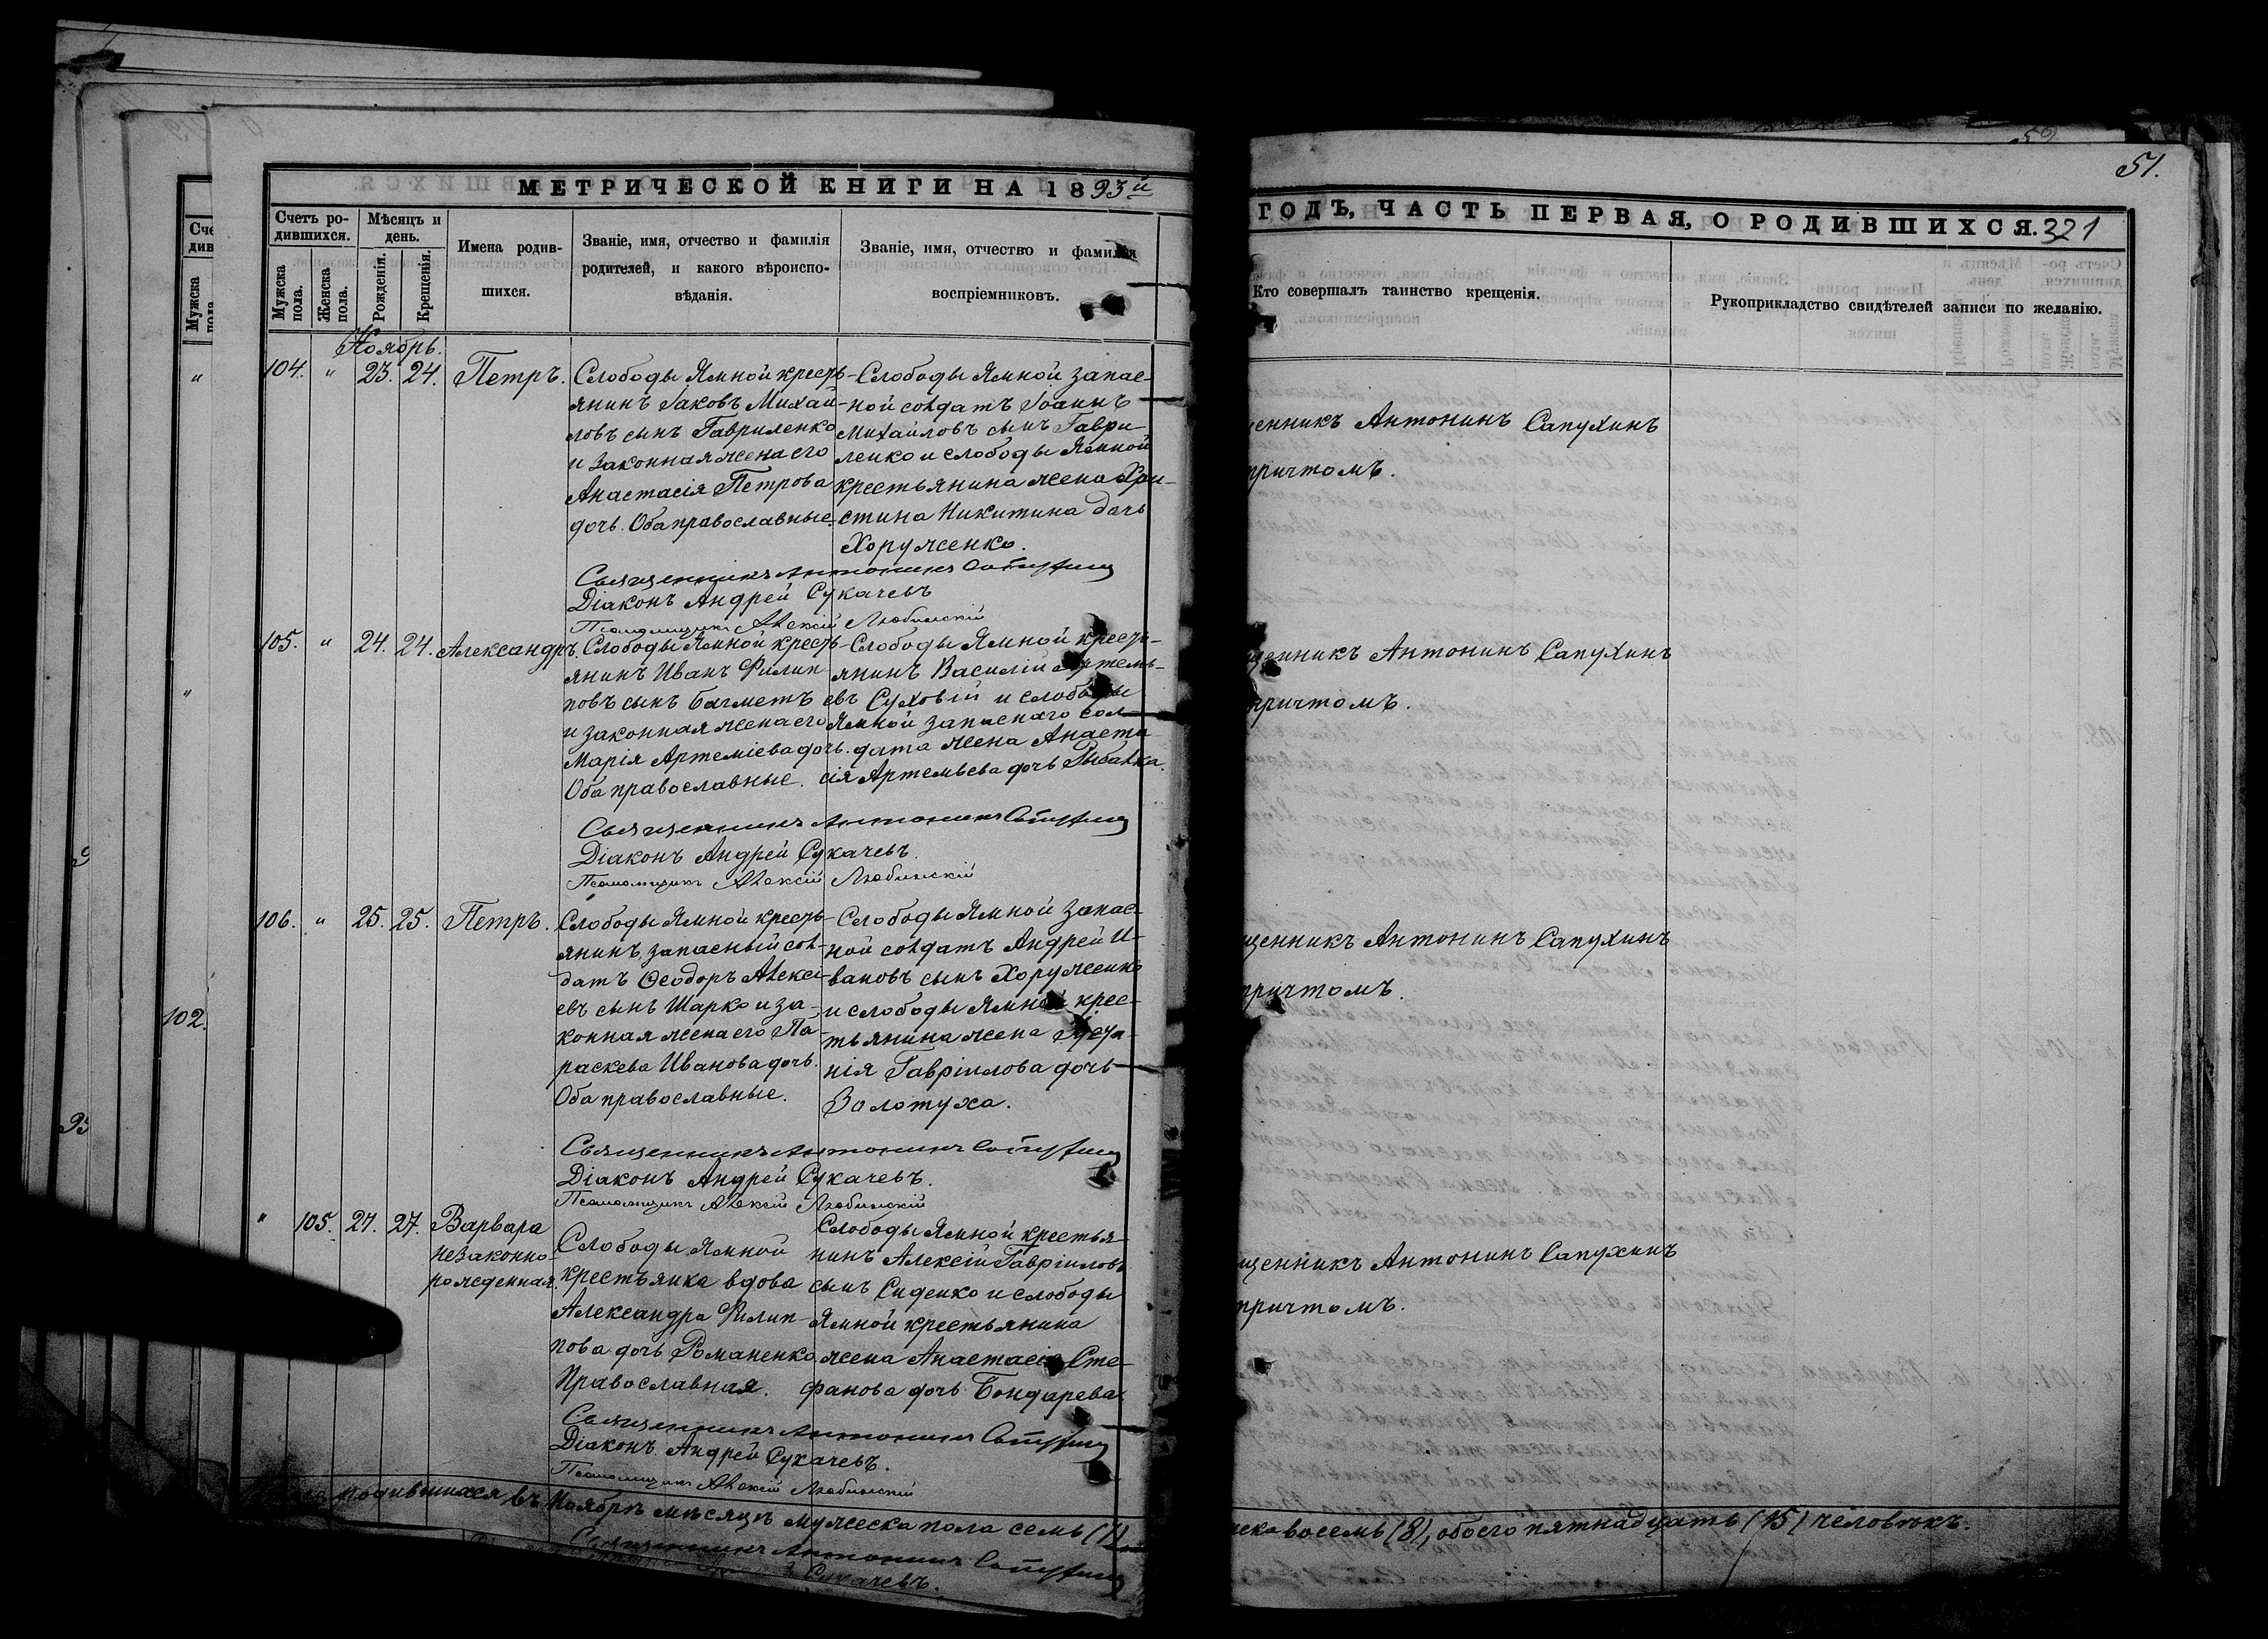 51.
МЕТРИЧЕСКОЙ КНИГИ НА 1893й
ГОДЪ, ЧАСТЬ ПЕРВАЯ, О РОДИВШИХСЯ. 321
Счетъ ро-
дившихся.
Мужска
пола.
Женска
пола.
Мѣсяцъ и
день.
Рожденія.
Крещенія.
Имена родив-
шихся.
Званіе, имя, отчество и фамилія
родителей, и какого вѣроиспо-
вѣданія.
Званіе, имя, отчество и фамилія
воспріемниковъ.
Кто совершалъ таинство крещенія.
Рукоприкладство свидѣтелей записи по желанію.
Ноябрь.
104. " 23. 24. Петръ.
Слободы Ямной кресть-
янинъ Іаковъ Михай-
ловъ сынъ Гавриленко
и законная жена его
Анастасія Петрова
дочь. Оба православные.
Слободы Ямной запас-
ной солдатъ Іоаннъ
Михайловъ сынъ Гаври-
ленко и слободы Ямной
крестьянина жена Хри-
стина Никитина дочь
Хоруженко.
щенникъ Антонинъ Сапухинъ
причтомъ.
Священникъ Антонинъ Сапухинъ
Діаконъ Андрей Сукачевъ
Псаломщикъ Алексій Любинскій
105. " 24. 24. Александръ.
Слободы Ямной кресть-
янинъ Иванъ Филип-
повъ сынъ Бахметъ
и законная жена его
Марія Артеміева дочь.
Оба православные.
Слободы Ямной кресть-
янинъ Василій Артемь-
евъ Суховій и слободы
Ямной запаснаго сол-
дата жена Анаста
сія Артемьева дочь Рыбалка.
щенникъ Антонинъ Сапухинъ
причтомъ.
Священникъ Антонинъ Сапухинъ
Діаконъ Андрей Сукачевъ.
Псаломщикъ Алексій Любинскій
106. " 25. 25. Петръ.
Слободы Ямной кресть-
янинъ, запасный сол-
датъ Ѳеодоръ Алексі-
евъ сынъ Шарко и за-
конная жена его Па-
раскева Иванова дочь.
Оба православные.
Слободы Ямной запас-
ной солдатъ Андрей И-
вановъ сынъ Хоруженко
и слободы Ямной крес-
тьянина жена
нія Гавріилова дочь
Золотуха.
щенникъ Антонинъ Сапухинъ
причтомъ.
Священникъ Антонинъ Сапухинъ
Діаконъ Андрей Сукачевъ.
Псаломщикъ Алексій Любинскій
" 105. 27. 27. Варвара
незаконно-
рожденная.
Слободы Ямной
крестьянка вдова
Александра Филип-
пова дочь Романенко
Православная.
Слободы Ямной крестья-
нинъ Алексій Гавріиловъ
сынъ Сиденко и слободы
Ямной крестьянина
жена Анастасія Сте-
фанова дочь Бондарева.
щенникъ Антонинъ Сапухинъ
причтомъ.
Священникъ Антонинъ Сапухинъ
Діаконъ Андрей Сукачевъ.
Псаломщикъ Алексій Любинскій
родившихся въ Ноябрѣ мѣсяцѣ мужеска пола семь (7)
ска восемь (8), обоего пятнадцать (15) человѣкъ.
Священникъ Антонинъ Сапухинъ
Сукачевъ.
102.